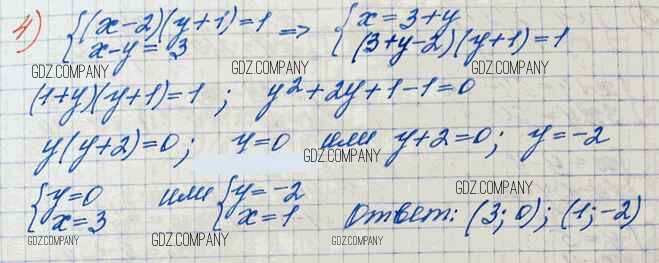 4) { (x-2)(y+1)=1 => { x=3+y
x-y=3 (3+y-2)(y+1)=1
GDZ.COMPANY GDZ.COMPANY
(1+y)(y+1)=1; y²+2y+1-1=0
y(y+2)=0; y=0 или y+2=0; y=-2
GDZ.COMPANY
GDZ.COMPANY
{ y=0 или { y=-2
x=3 x=1 Ответ: (3; 0); (1; -2)
GDZ.COMPANY GDZ.COMPANY GDZ.COMPANY